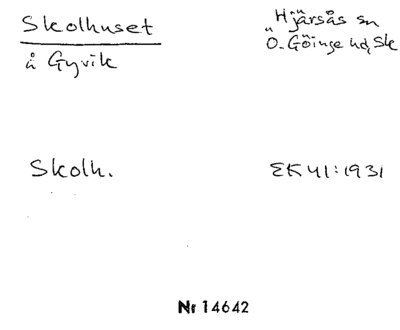 Skolhuset
å Gyvik
Hjärsås sn
Ö. Göinge hd, Sk
Skolh.
EK 41:1931
Nr 14642